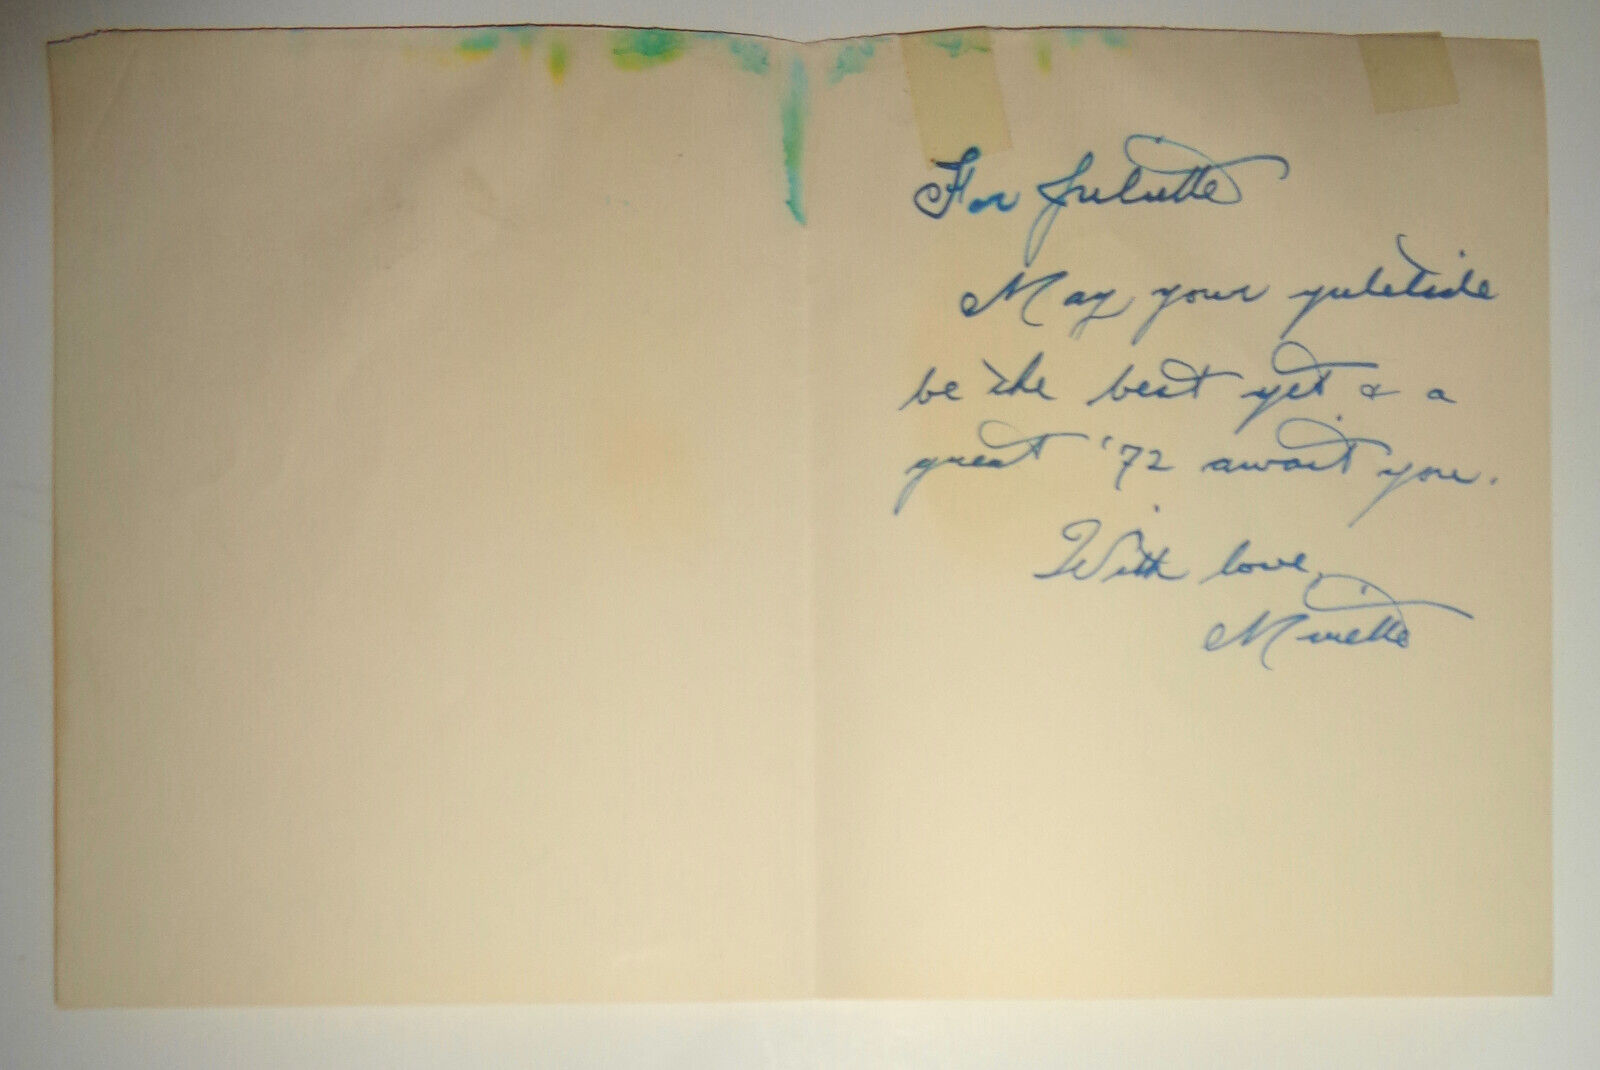 For Juliette
May your yuletide
be the best yet & a
great '72 await you.
With love,
Minette